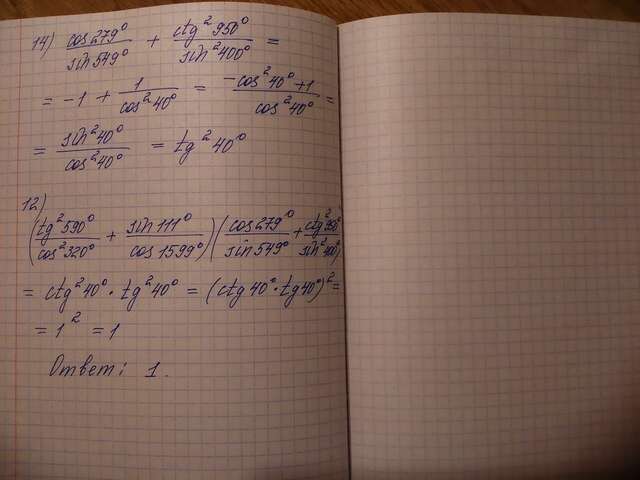 14) cos279°/sin549° + ctg²950°/sin²400° =
= -1 + 1/cos²40° = (-cos²40°+1)/cos²40° =
= sin²40°/cos²40° = tg²40°
12)
(tg²590°/cos²320° + sin111°/cos1599°)(cos279°/sin549° + ctg²950°/sin²400°)
= ctg²40° · tg²40° = (ctg40° · tg40°)² =
= 1² = 1
Ответ: 1.